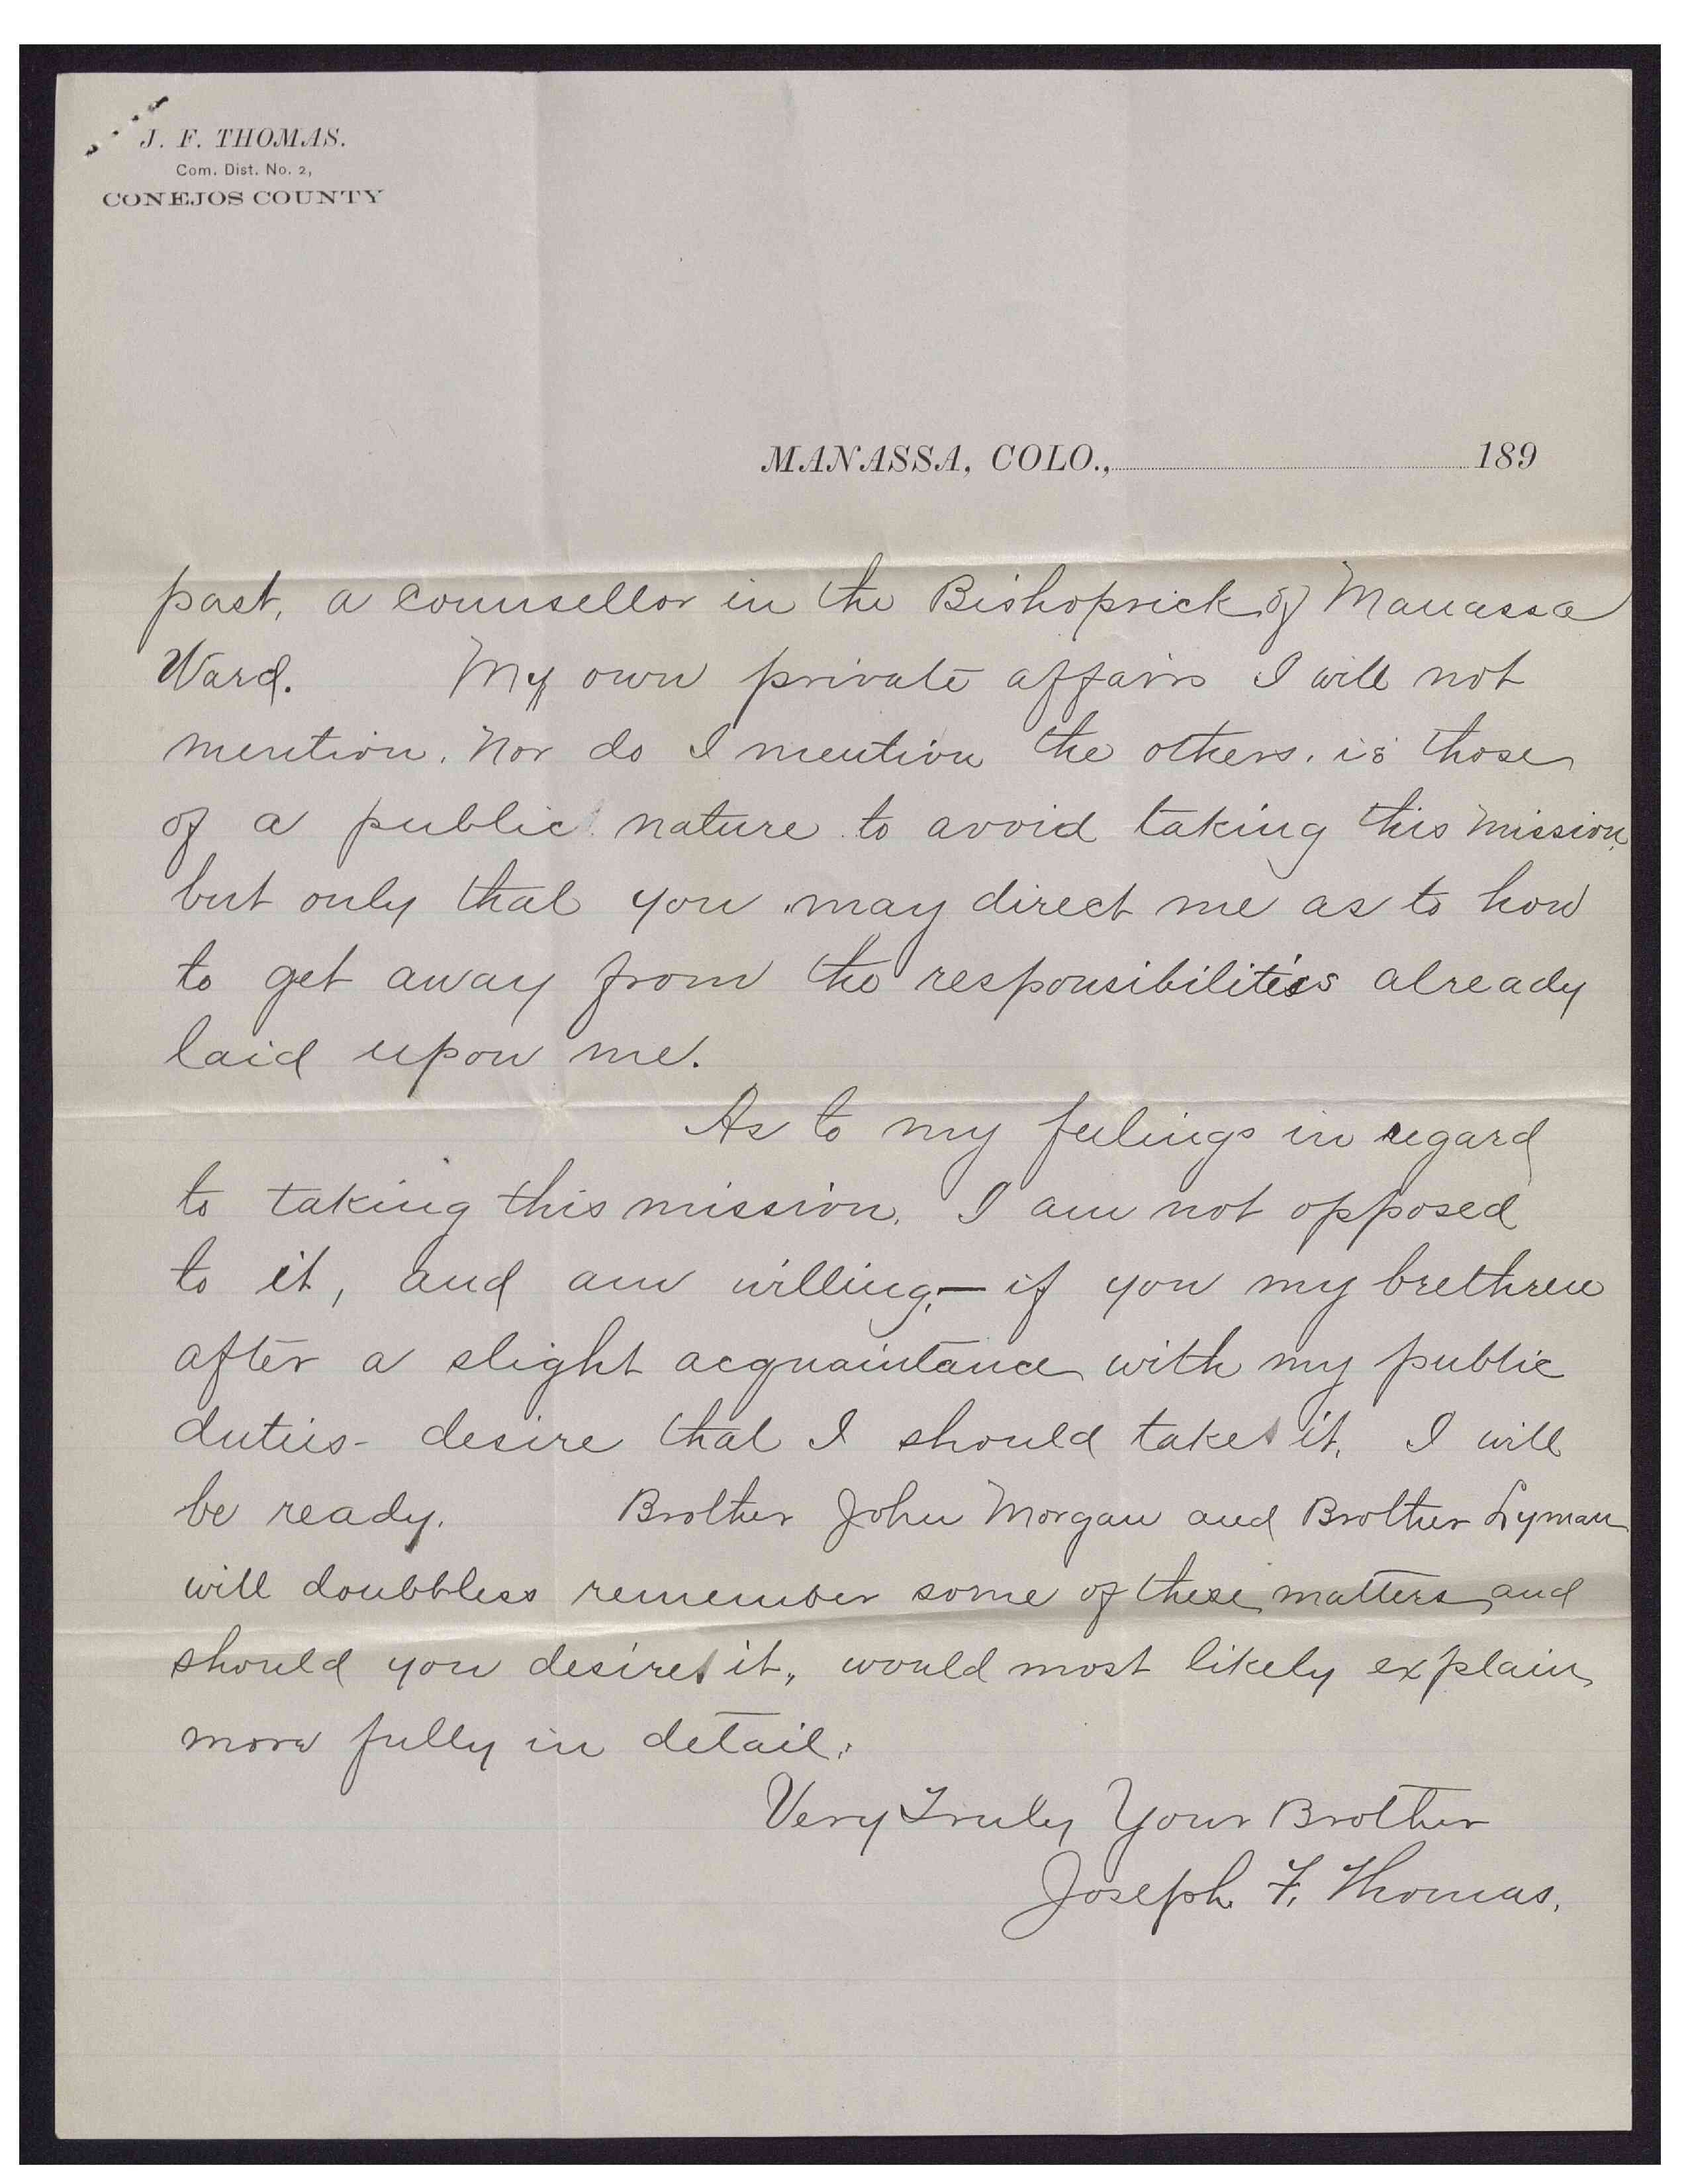 J. F. THOMAS.
Com. Dist. No. 2,
CONEJOS COUNTY
MANASSA, COLO., 189
past, a counsellor in the Bishoprick of Manassa
Ward. My own private affairs I will not
mention. Nor do I mention the others. i.e. those
of a public nature to avoid taking this mission,
but only that you may direct me as to how
to get away from the responsibilities already
laid upon me.
As to my feelings in regard
to taking this mission. I am not opposed
to it, and am willing,— if you my brethren
after a slight acquaintance with my public
duties- desire that I should take it. I will
be ready. Brother John Morgan and Brother Lyman
will doubbtless remember some of these matters and
should you desire it, would most likely explain
more fully in detail.
Very Truly Your Brother
Joseph F. Thomas.